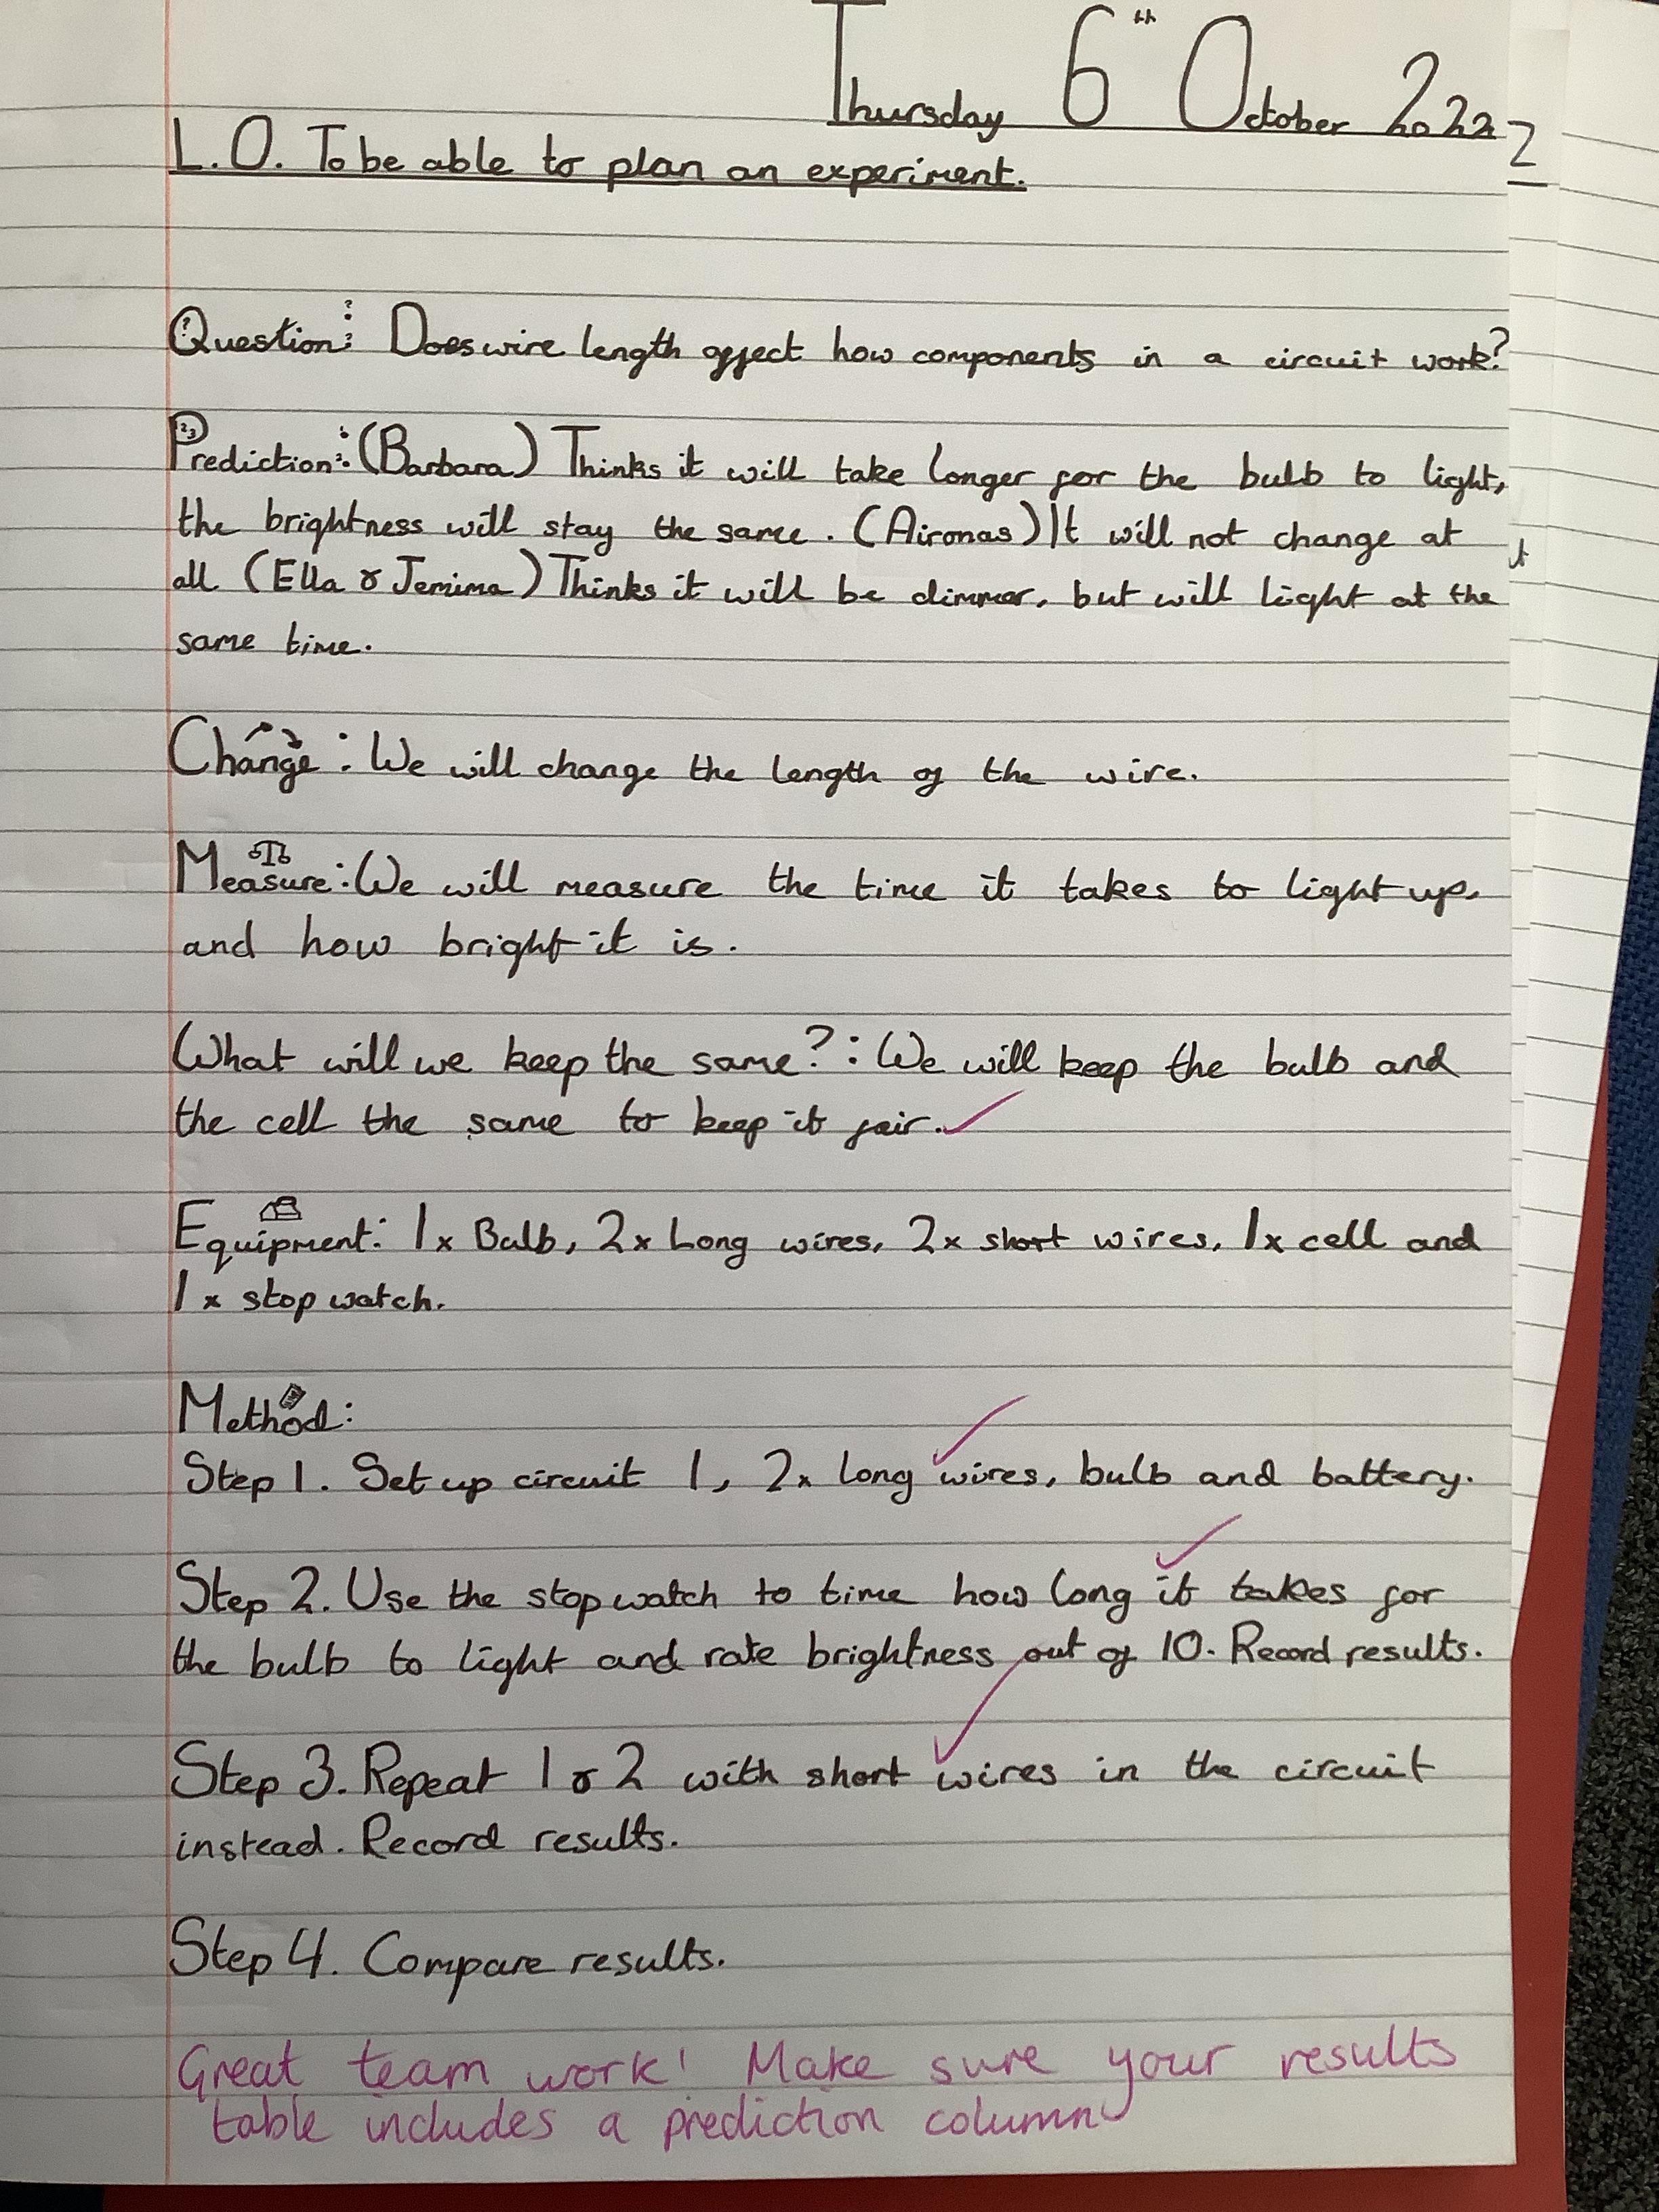 Thursday 6th October 2022
L.O. To be able to plan an experiment.
Question: Does wire length affect how components in a circuit work?
Prediction: (Barbara) Thinks it will take longer for the bulb to light,
the brightness will stay the same. (Aironas) It will not change at
all (Ella & Jemima) Thinks it will be dimmer, but will light at the
same time.
Change: We will change the length of the wire.
Measure: We will measure the time it takes to light up,
and how bright it is.
What will we keep the same?: We will keep the bulb and
the cell the same to keep it fair.
Equipment: 1x Bulb, 2x Long wires, 2x short wires, 1x cell and
1x stop watch.
Method:
Step 1. Set up circuit 1, 2x long wires, bulb and battery.
Step 2. Use the stop watch to time how long it takes for
the bulb to light and rate brightness out of 10. Record results.
Step 3. Repeat 1 & 2 with short wires in the circuit
instead. Record results.
Step 4. Compare results.
Great team work! Make sure your results
table includes a prediction column